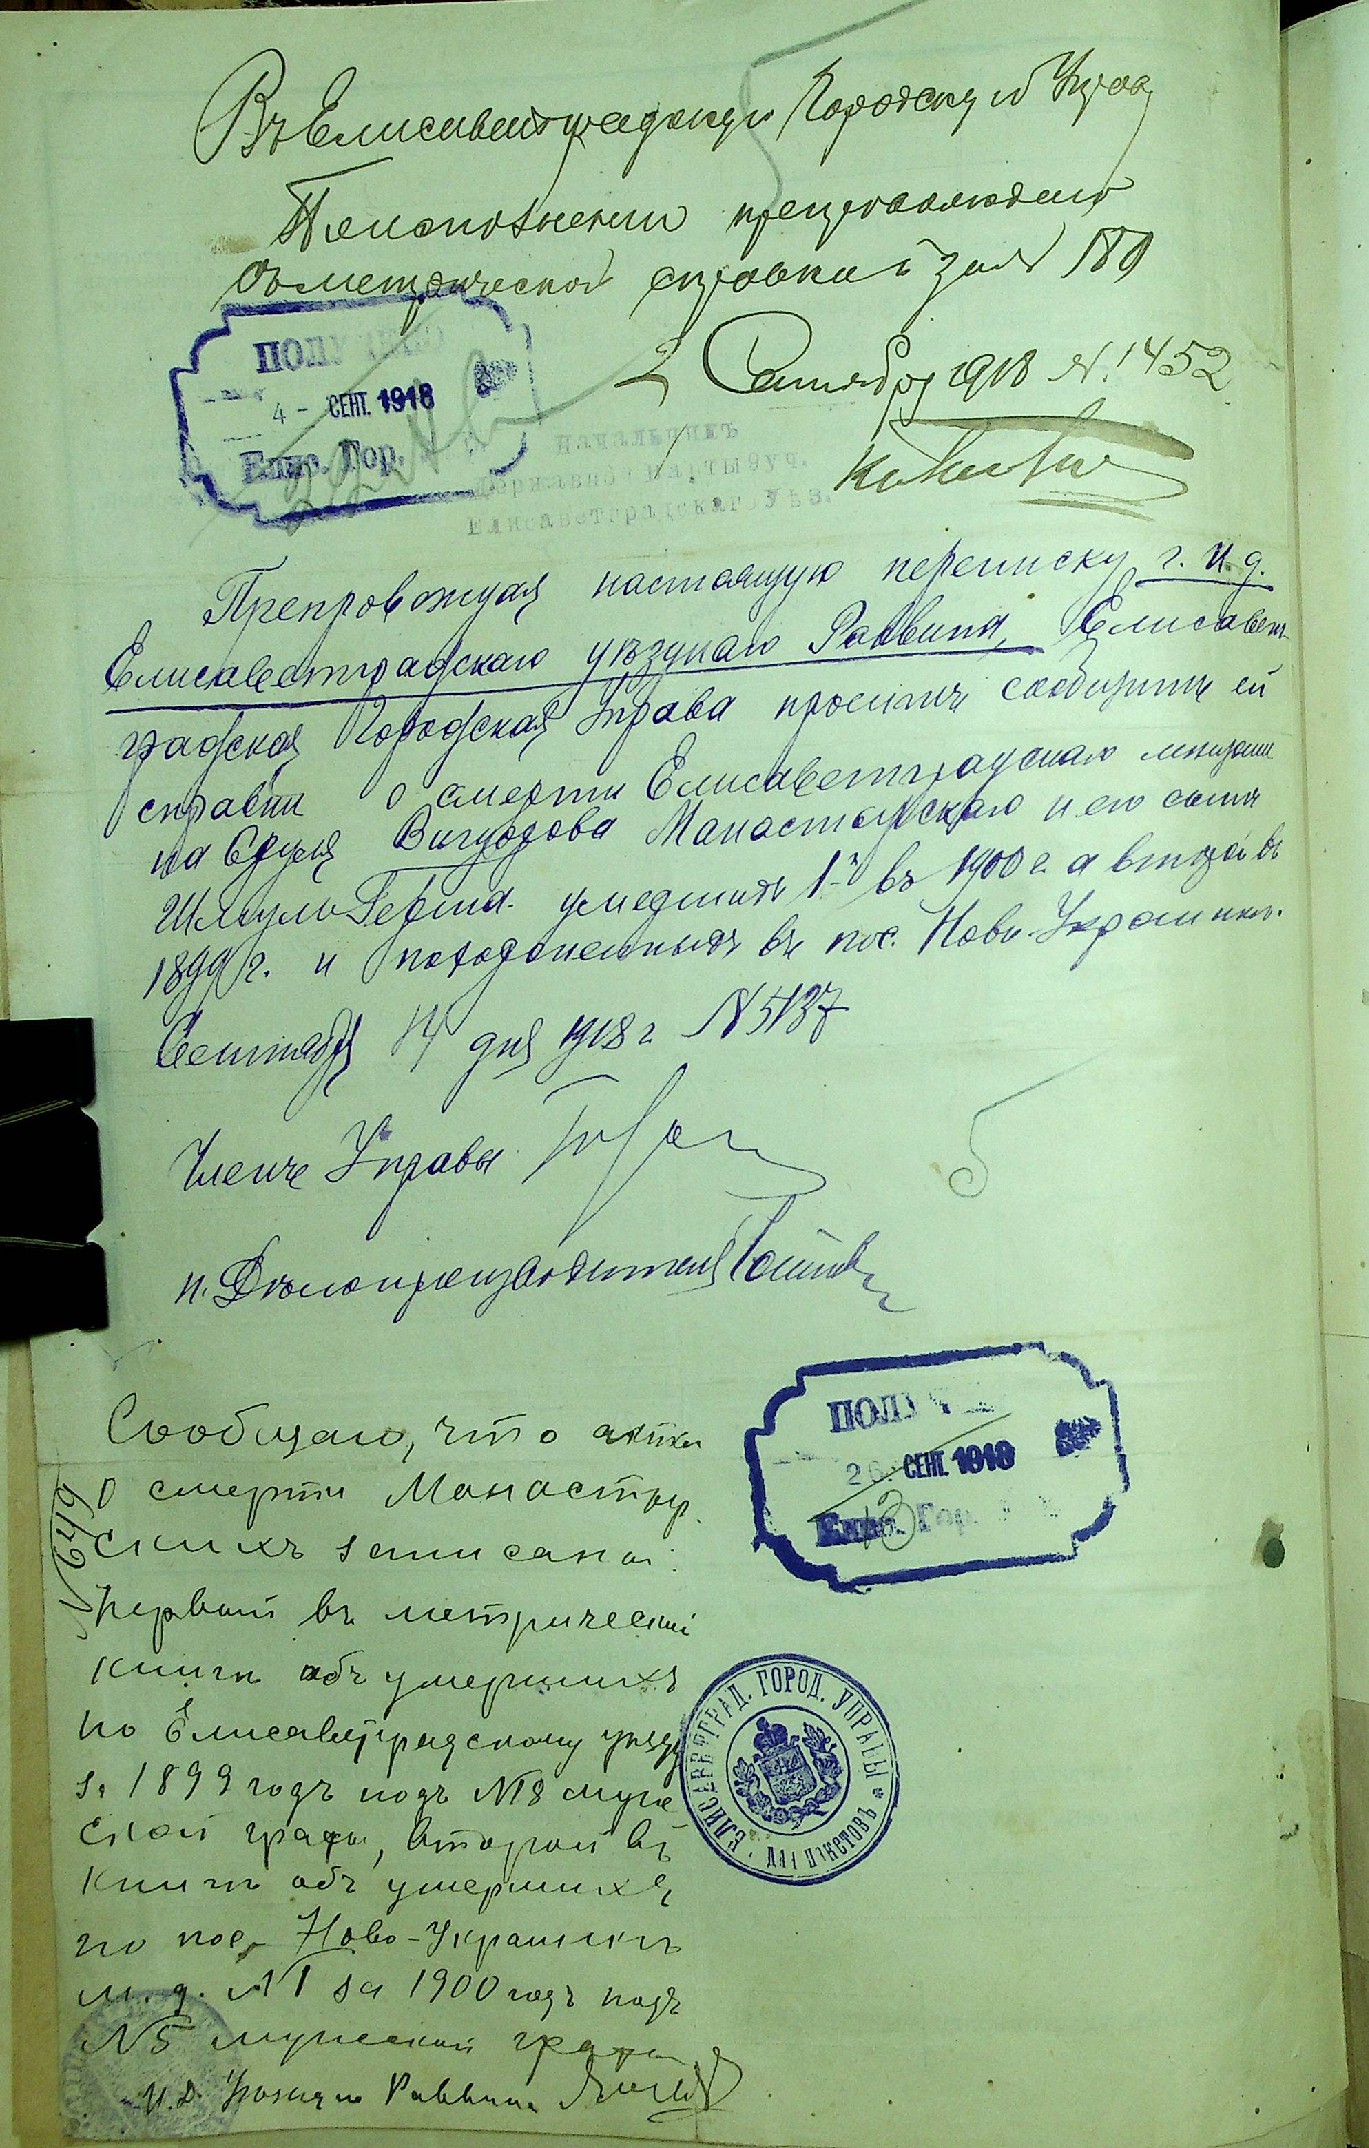 Въ Елисаветградскую Городскую Управу
По исполненіи препровождаю
метрической справки за №
ПОЛУЧЕНО
4 - СЕНТ. 1918
Елис. Гор.
2 Сентября 1918 N. 1452
Начальникъ
Державной Варты уч.
Елисаветградскаго Уѣз.
Препровождая настоящую переписку г. И. д.
Елисаветградскаго уѣзднаго Раввина, Елисавет-
градская Городская Управа проситъ сообщить ей
справки о смерти Елисаветградскаго мѣщани
на Сруля Вигдорова Манастырскаго и его сына
Шмуль умершихъ 1-й въ 1900 г. а второй въ
1899 г. и похороненныхъ въ пос. Ново-Украинкѣ.
Сентября 14 дня 1918 г. N 5137
Членъ Управы
п. Дѣлопроизводителя
Сообщаю, что акты
о смерти Манастыр
скихъ записаны:
Первый въ метрической
книгѣ объ умершихъ
по Елисаветградскому уѣзду
за 1899 годъ подъ N 8 муже
ской графы, второй въ
книгѣ объ умершихъ
по пос. Ново-Украинкѣ
м. д. N 1 за 1900 годъ подъ
N 5 мужеской графы
И. Д. Уѣзднаго Раввина
N 649
ПОЛУЧЕНО
26 СЕНТ. 1918
Елис. Гор.
ЕЛИСАВЕТГРАД. ГОРОД. УПРАВЫ * ДЛЯ ПАКЕТОВЪ